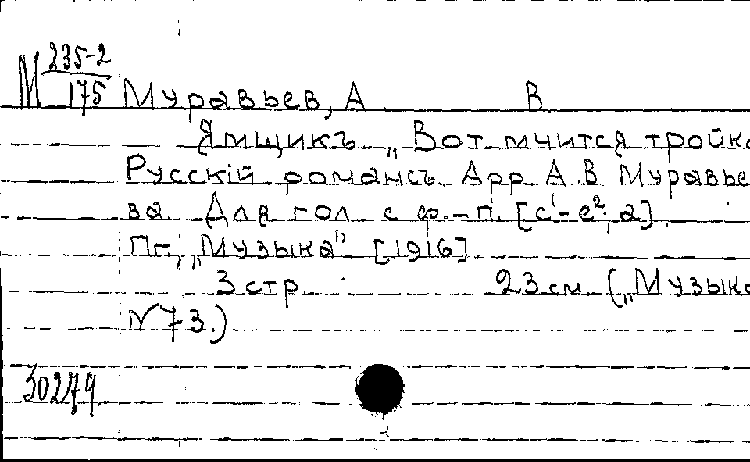 М 235-2
175 Муравьев, А В
Ямщикъ „Вот мчится тройка
Русскій романсъ. Арр. А. В Муравье
ва Для гол. с ф.-п. [c¹-e², a].
Пг, „Музыка" [1916]
3 стр. 23 см. („Музыка
N 73.)
30279